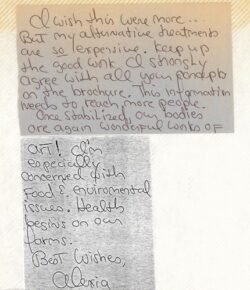 I wish this were more...
But my alternative treatments
are so expensive. Keep up
the good work. I strongly
agree with all your concepts
on the brochure. This information
needs to reach more people.
Once stabilized, our bodies
are again wonderful works of
art! I'm
especially
concerned with
Food & enviromental
issues. Health
begins on our
farms.
Best Wishes,
Alexia